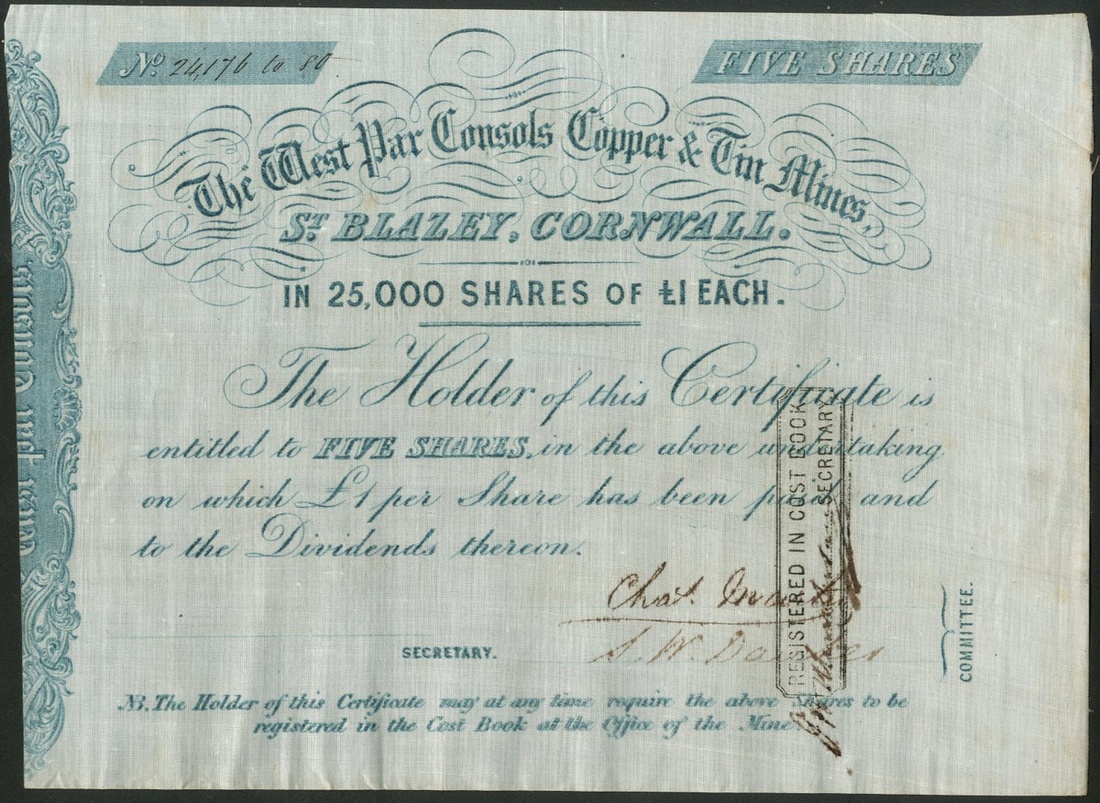 No. 24,176 to 80
FIVE SHARES
The West Par Consols Copper & Tin Mines,
ST. BLAZEY, CORNWALL.
IN 25,000 SHARES OF £1 EACH.
The Holder of this Certificate is
entitled to FIVE SHARES, in the above undertaking
on which £1 per Share has been paid and
to the Dividends thereon.
Chas.
S. W.
SECRETARY.
COMMITTEE.
NB. The Holder of this Certificate may at any time require the above Shares to be
registered in the Cost Book at the Office of the Mine.
REGISTERED IN COST BOOK
SECRETARY
West Par Consols.